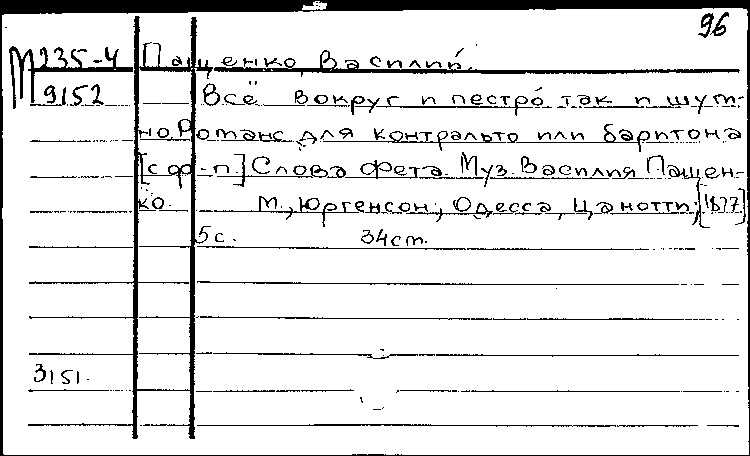 96
М235-4 Пащенко, Василий.
9152 Всё вокруг и пестро́ так и шум-
но. Романс для контральто или баритона
[с ф.-п] Слова Фета. Муз. Василия Пащен-
ко. М., Юргенсон; Одесса, Цанотти; [1877]
5с. 34ст.
3151.